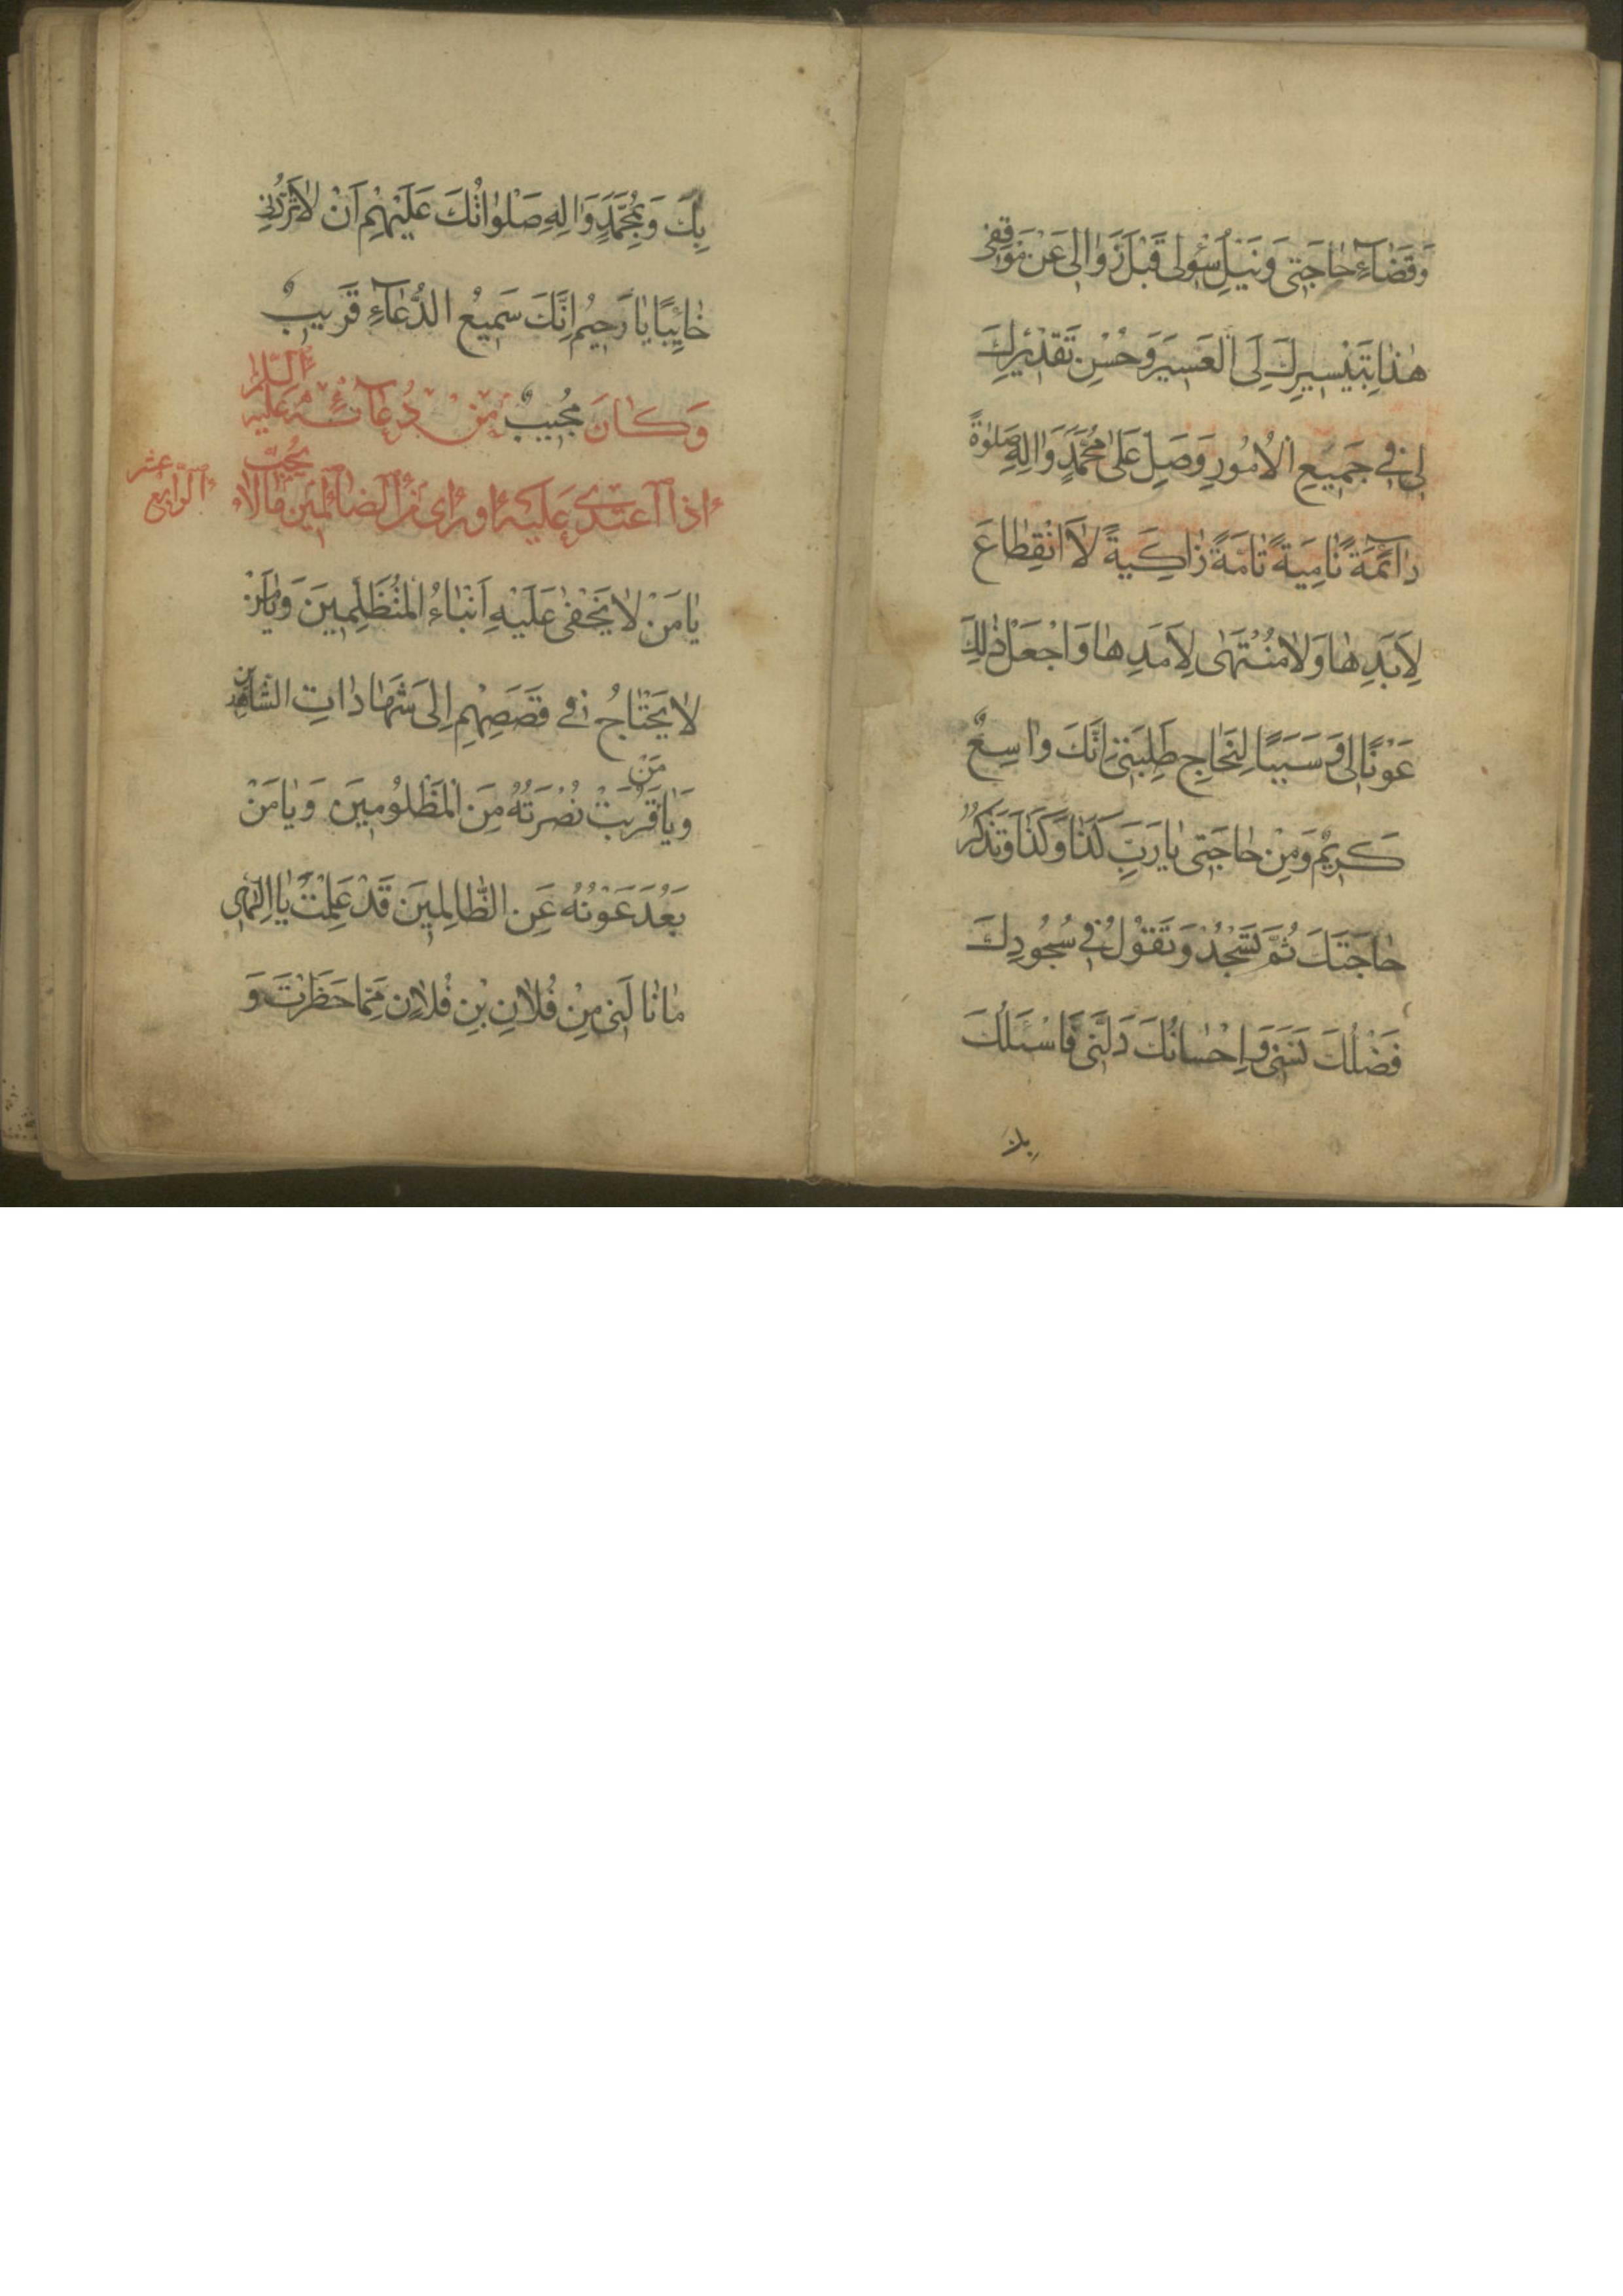 وَقَضَآءِ حَاجَتِى وَنَيْلِ سُؤْلِى قَبْلَ زَوَالِى عَنْ مَوْقِفِى
هٰذَا بِتَيْسِيرِكَ لِىَ الْعَسِيرَ وَحُسْنِ تَقْدِيرِكَ
لِى فِى جَمِيعِ الْاُمُورِ وَصَلِّ عَلَى مُحَمَّدٍ وَاٰلِهِ صَلٰوةً
دَآئِمَةً نَامِيَةً تَامَةً زَاكِيَةً لَا انْقِطَاعَ
لِاَبَدِهَا وَلَا مُنْتَهَى لِاَمَدِهَا وَاجْعَلْ ذٰلِكَ
عَوْنًا لِى وَسَبَبًا لِنَجَاحِ طَلِبَتِى اِنَّكَ وَاسِعٌ
كَرِيمٌ وَمِنْ حَاجَتِى يَا رَبِّ كَذَا وَكَذَا وَتَذْكُرُ
حَاجَتَكَ ثُمَّ تَسْجُدُ وَتَقُولُ فِى سُجُودِكَ
فَضْلُكَ اٰنَسَنِى وَاِحْسَانُكَ دَلَّنِى فَاَسْئَلُكَ
بِكَ وَبِمُحَمَّدٍ وَاٰلِهِ صَلَوَاتُكَ عَلَيْهِمْ اَنْ لَا تَرُدَّنِى
خَائِبًا يَا رَحِيمُ اِنَّكَ سَمِيعُ الدُّعَآءِ قَرِيبٌ
مُجِيبٌ وَكَانَ مِنْ دُعَآئِهِ عَلَيْهِ السَّلَامُ
اِذَا اعْتُدِىَ عَلَيْهِ اَوْ رَاٰى مِنَ الظَّالِمِينَ مَا لَا يُحِبُّ
الرَّابِعُ عشر
يَا مَنْ لَا يَخْفٰى عَلَيْهِ اَنْبَاءُ الْمُتَظَلِّمِينَ وَيَا مَنْ
لَا يَحْتَاجُ فِى قَصَصِهِمْ اِلَى شَهَادَاتِ الشَّاهِدِينَ
وَيَا مَنْ قَرُبَتْ نُصْرَتُهُ مِنَ الْمَظْلُومِينَ وَيَا مَنْ
بَعُدَ عَوْنُهُ عَنِ الظَّالِمِينَ قَدْ عَلِمْتَ يَا اِلٰهِى
مَا نَالَنِى مِنْ فُلَانِ بْنِ فُلَانٍ مِمَّا حَظَرْتَ وَ